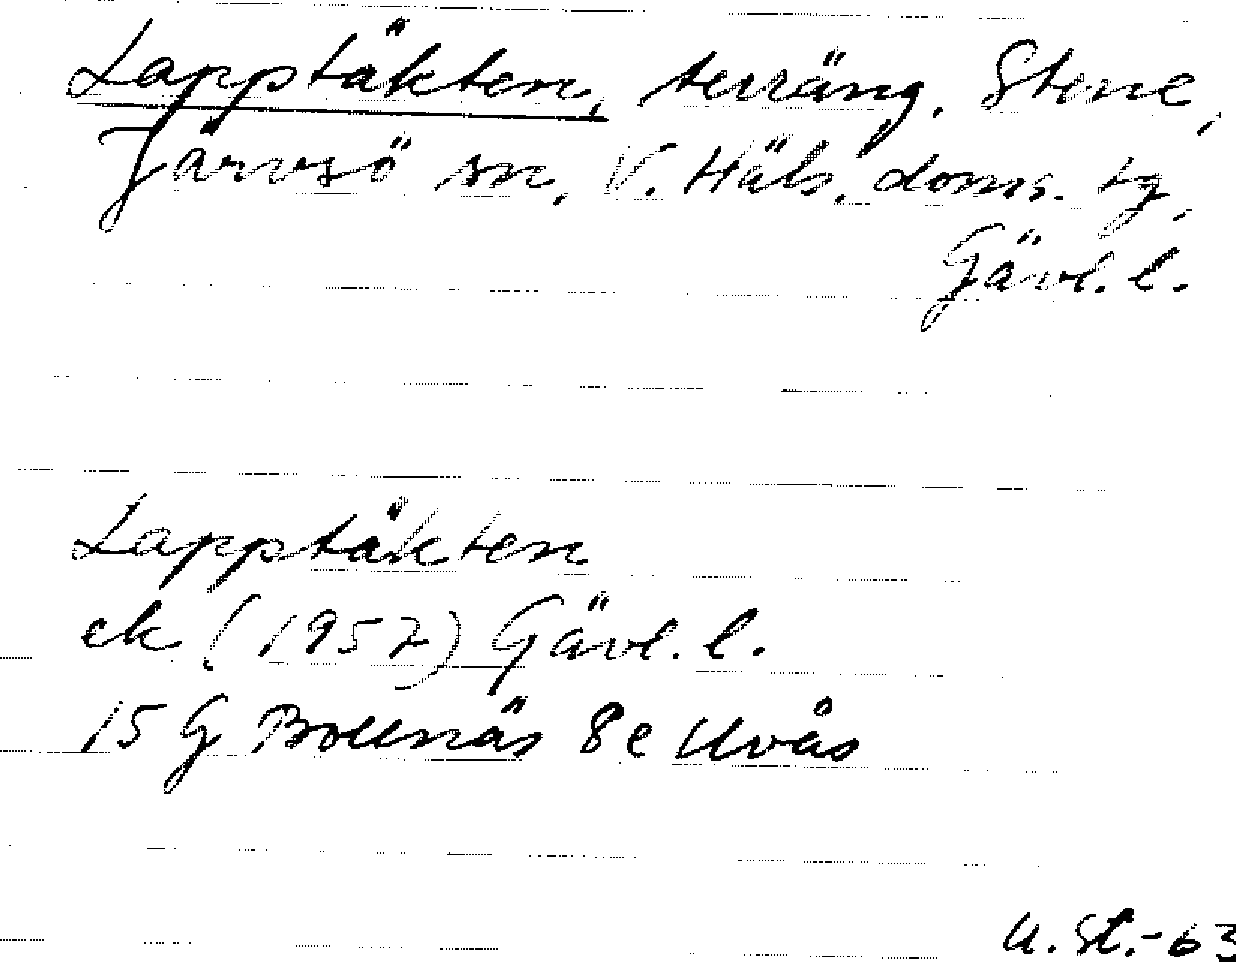 Lapptäkten, terräng. Stene,
Järvsö sn, V. Häls. doms. tg,
Gävl. l.
Lapptäkten
ek (1957) Gävl. l.
15 G Bollnäs 8e Uvås
U. St.-63